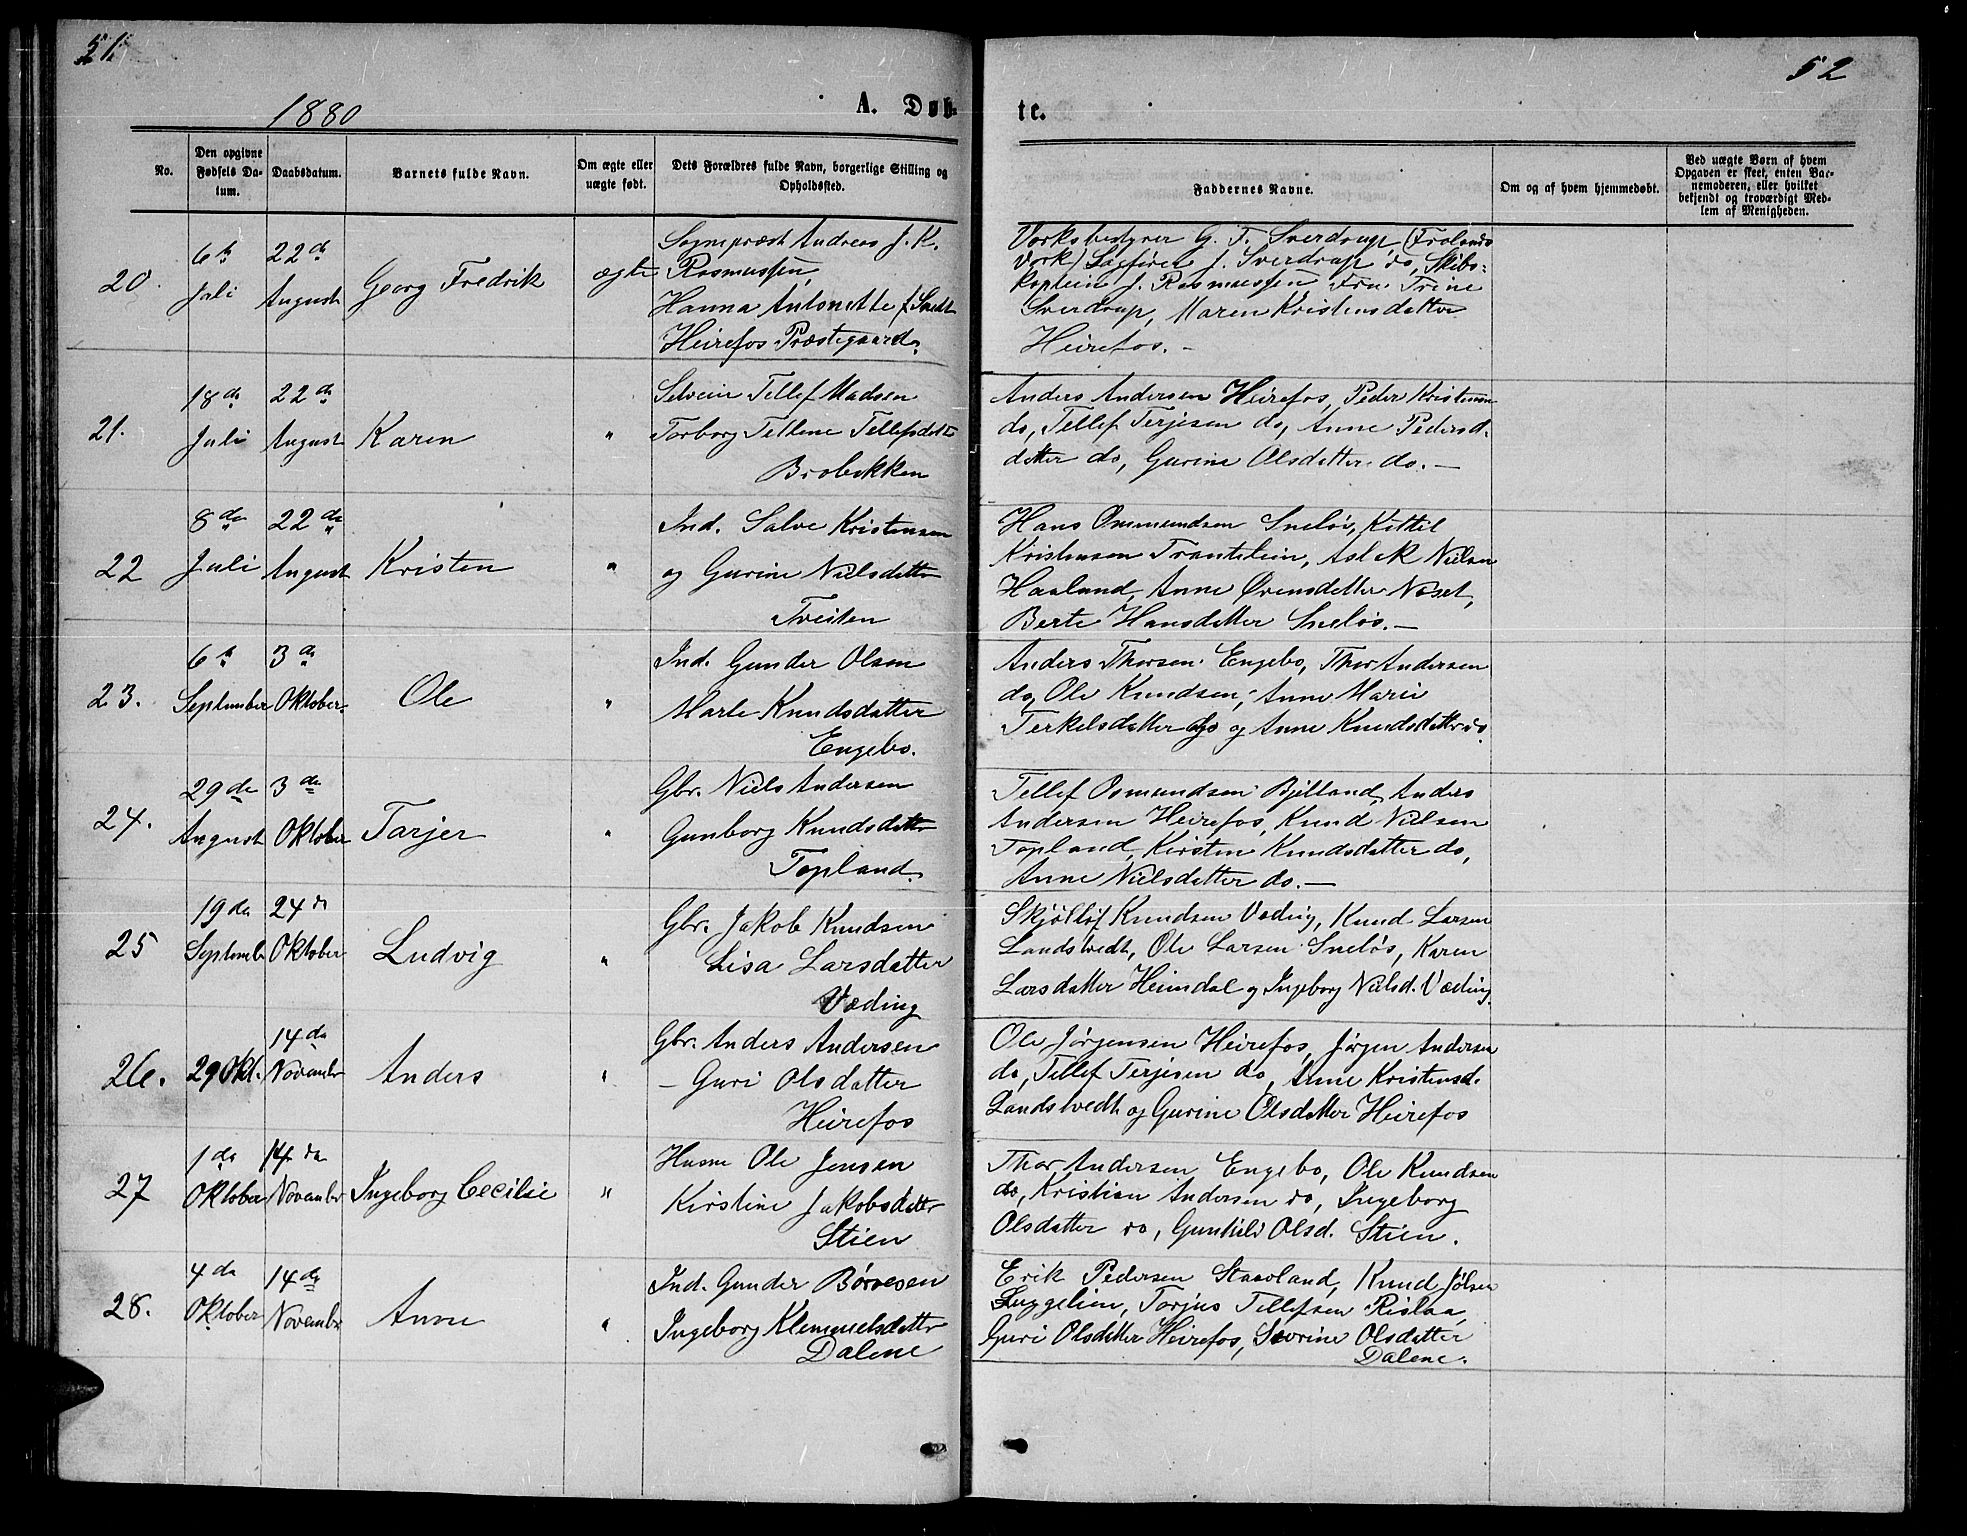 51.
52
1880
A. Døb-
te.
No.
Den opgivne Fødsels Da-
tum.
Daabsdatum.
Barnets fulde Navn.
Om ægte eller uægte født.
Dets Forældres fulde Navn, borgerlige Stilling og Opholdssted.
Faddernes Navne.
Om og af hvem hjemmedøbt.
Ved uægte Børn af hvem
Opgaven er skeet, enten Bar-
nemoderen, eller hvilket
bekjendt og troværdigt Med-
lem af Menigheden.
20.
6te Juli
22de August
Georg Fredrik
ægte
Sognepræst Andreas J. K.
Rasmussen,
Hanna Antonette f. Smidt
Heirefos Præstegaard.
Værksbestyrer G. F. Sverdrup (Frolands
Værk) Sagfører J. Sverdrup do, Skibs-
kaptein J. Rasmussen Fru Trine
Sverdrup, Maren Kristensdatter
Heirefos. -
21.
18de Juli
22de August
Karen
"
Selveier Tellef Madsen
Torborg Tellene Tellefsdatter
Brobekken
Anders Andersen Heirefos, Peder Kristensen
do, Tellef Terjesen do, Anne Peders-
datter do, Gurine Olsdatter do. -
22
8de Juli
22de August
Kristen
"
Ind. Salve Kristensen
og Gurine Nielsdatter
Treiten
Hans Ommundsen Sneløs, Kittil
Kristensen Trantelein, Aslak Nielsen
Haaland, Anne Ørensdatter Næset,
Berte Hansdatter Sneløs. -
23.
6te September
3de Oktober.
Ole
"
Ind. Gunder Olsen
Marte Knudsdatter
Engebo.
Anders Thorsen Engebo, Thor Andersen
do, Ole Knudsen, Anne Marie
Terkelsdatter do og Anne Knudsdatter do.
24.
29de August
3de Oktober
Tarjer
"
Gbr. Niels Andersen
Gunborg Knudsdatter
Topland.
Tellef Osmundsen Bjelland, Anders
Andersen Heirefos, Knud Nielsen
Topland, Kirsten Knudsdatter do,
Anne Nielsdatter do. -
25
19de Septembr
24de Oktober
Ludvig
"
Gbr. Jakob Knudsen
Lisa Larsdatter
Væding
Skjøllof Knudsen Væding, Knud Larsen
Landstvedt, Ole Larsen Sneløs, Karen
Larsdatter Heimdal og Ingeborg Nielsd. Væding.
26.
29 Okt.
14de Novembr
Anders
"
Gbr. Anders Andersen
- Guri Olsdatter
Heirefos
Ole Jørgensen Heirefos, Jørgen Andersen
do, Tellef Terjesen do, Anne Kristensd.
Landstvedt og Gurine Olsdatter Heirefos
27
1de Oktober
14de Novembr
Ingeborg Cecilie
"
Husm Ole Jensen
Kirstine Jakobsdatter
Stien
Thor Andersen Engebo, Ole Knudsen
do, Kristian Andersen do, Ingeborg
Olsdatter do, Gunhild Olsd. Stien.
28.
4de Oktober
14de Novembr
Anne
"
Ind. Gunder Børresen
Ingeborg Klemmetsdatter
Dalene
Erik Pedersen Staavland, Knud Jølsen
Luggelien, Torjus Tellefsen Rislaa,
Guri Olsdatter Heirefos, Severine Olsdatter
Dalene.